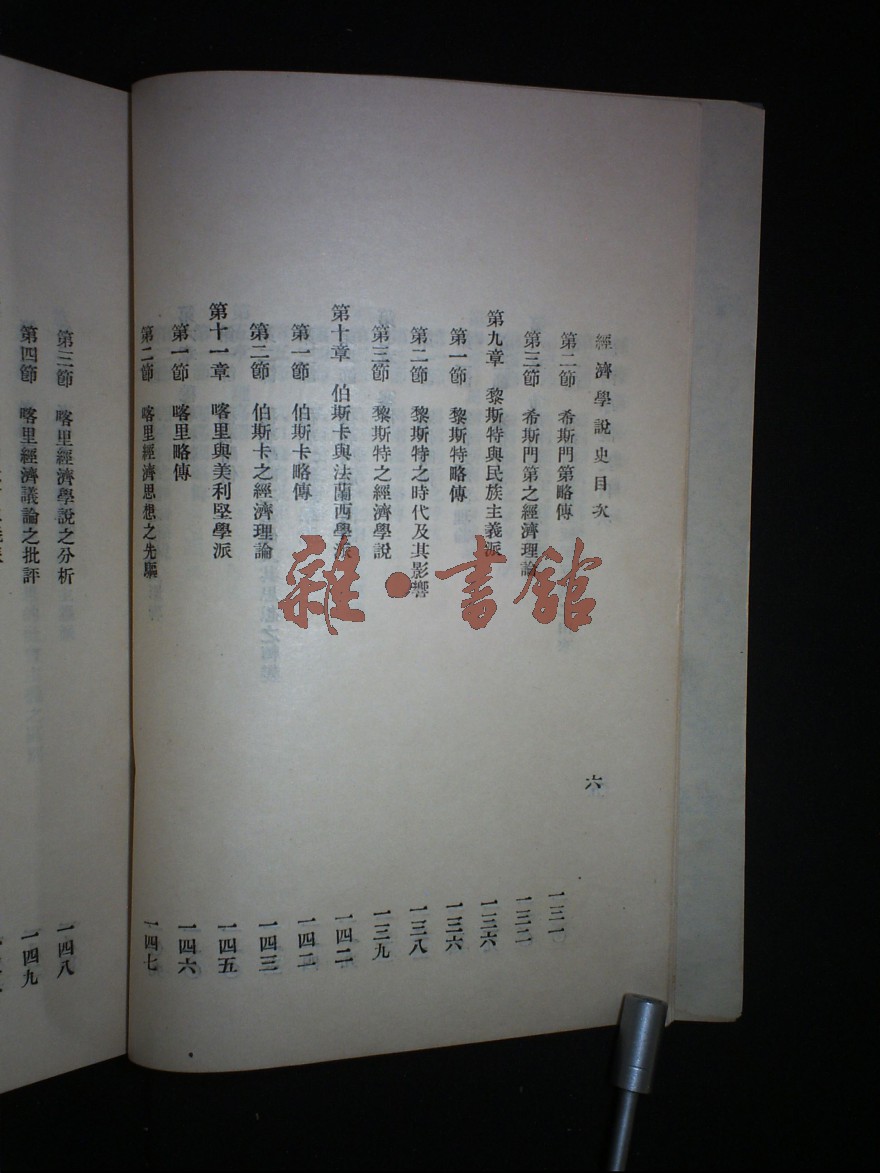 經濟學說史目次
六
第二節 希斯門第略傳 一三一
第三節 希斯門第之經濟理論 一三二
第九章 黎斯特與民族主義派 一三六
第一節 黎斯特略傳 一三六
第二節 黎斯特之時代及其影響 一三八
第三節 黎斯特之經濟學說 一三九
第十章 伯斯卡與法蘭西學派 一四二
第一節 伯斯卡略傳 一四二
第二節 伯斯卡之經濟理論 一四三
第十一章 喀里與美利堅學派 一四五
第一節 喀里略傳 一四六
第二節 喀里經濟思想之先驅 一四七
第三節 喀里經濟學說之分析 一四八
第四節 喀里經濟議論之批評 一四九
雜·書館